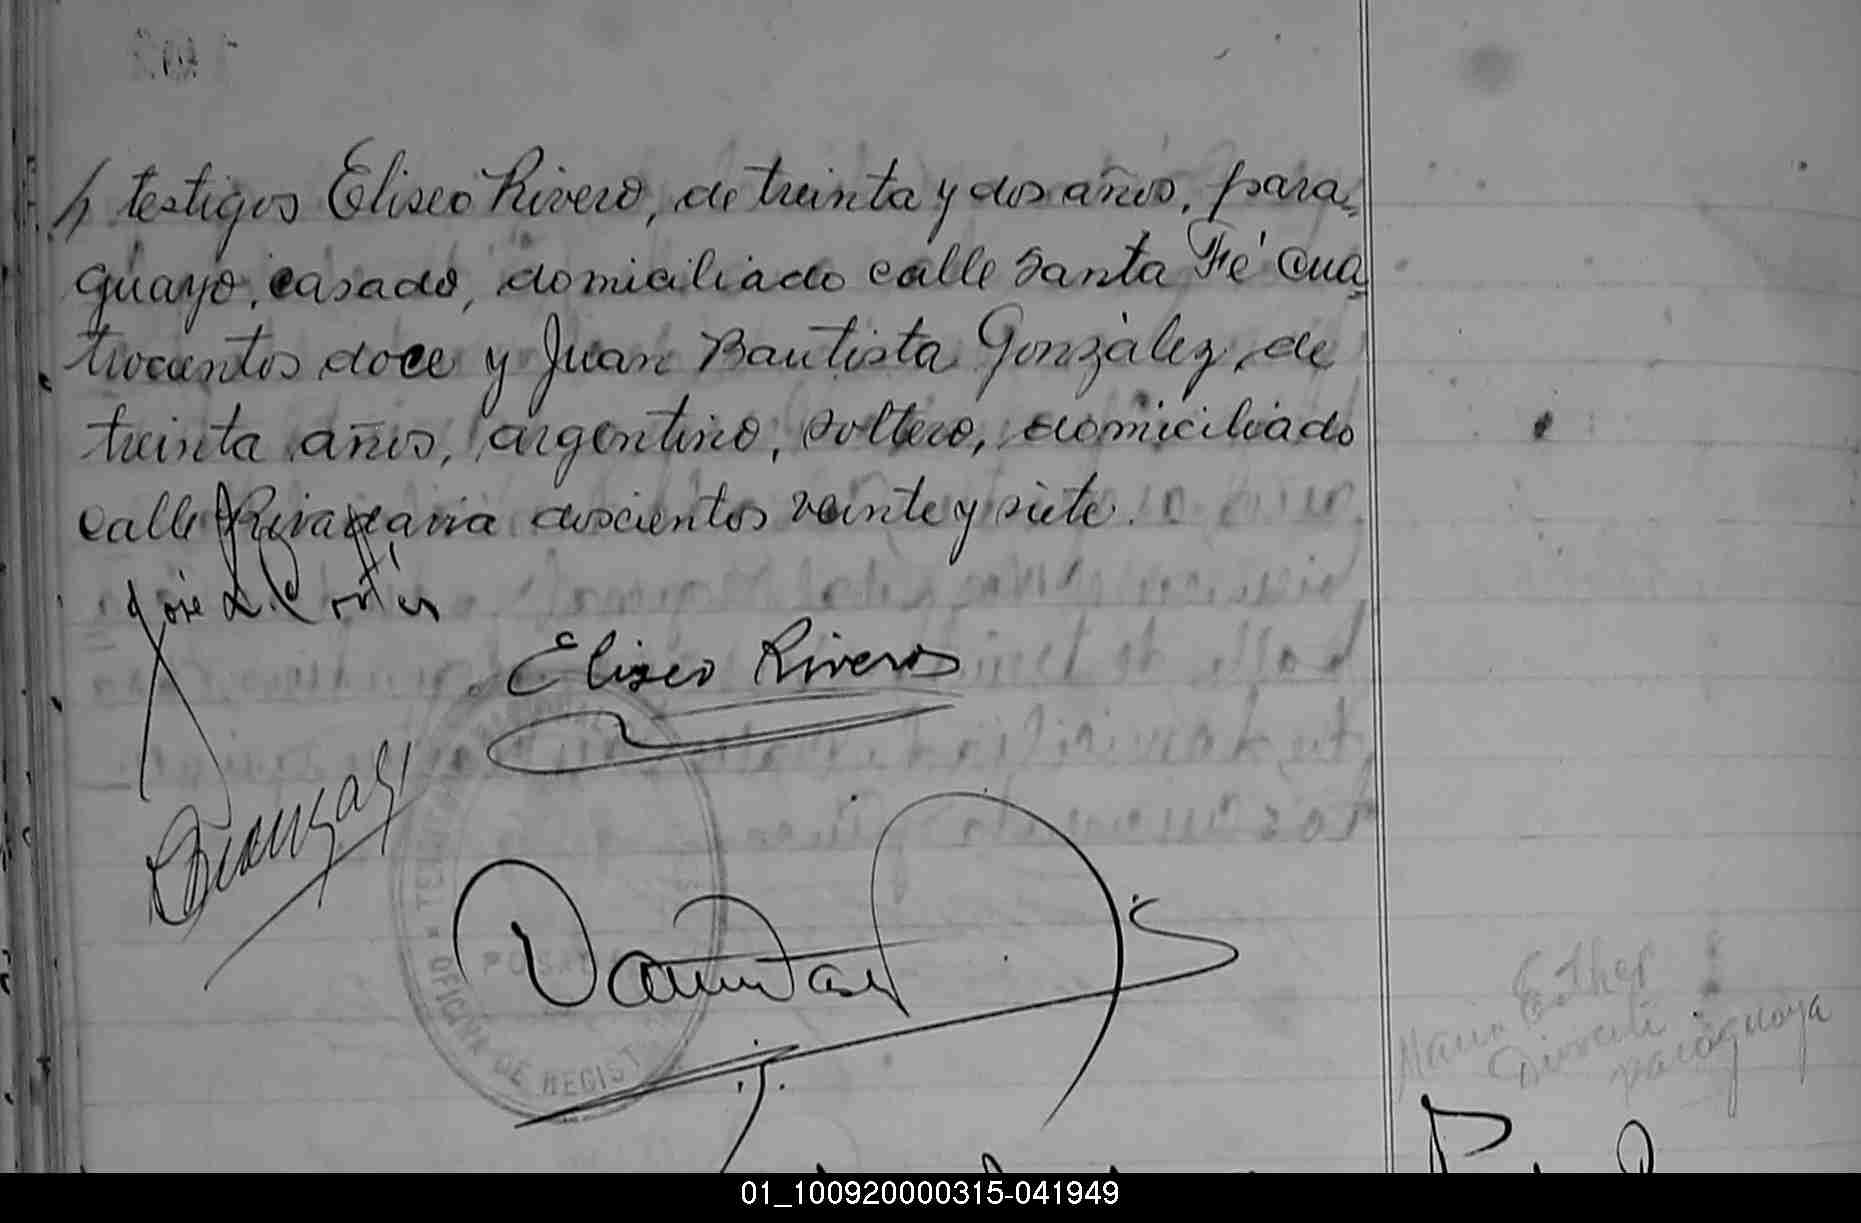 testigos Eliseo Rivero, de treinta y dos años, para=
guayo, casado, domiciliado calle Santa Fé cua=
trocientos doce y Juan Bautista González, de
treinta años, argentino, soltero, domiciliado
calle Rivadavia doscientos veinte y siete.
José L. Cortés
Eliseo Riveros
OFICINA DE REGIST
Maria Esther
paraguaya
01_100920000315-041949